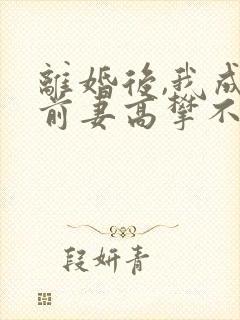 離婚後,我成
前妻高攀不
段妍青